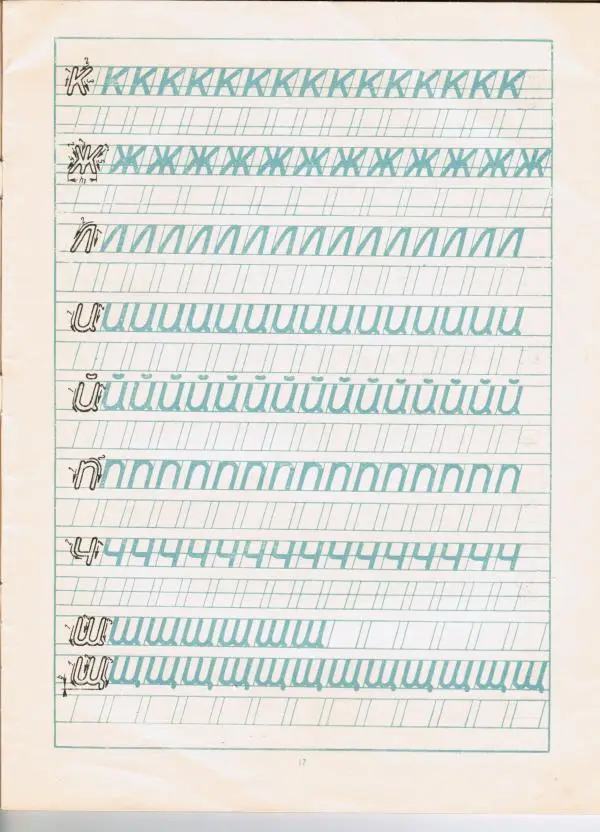 к ККККККККККККККК
ж ЖЖЖЖЖЖЖЖЖЖЖЖ
л ллллллллллллллл
и иииииииииииииии
й ййййййййййййййй
п ппппппппппппппп
ч ччччччччччччччч
ш шшшшшш
щ щщщщщщщщщщщщ
17